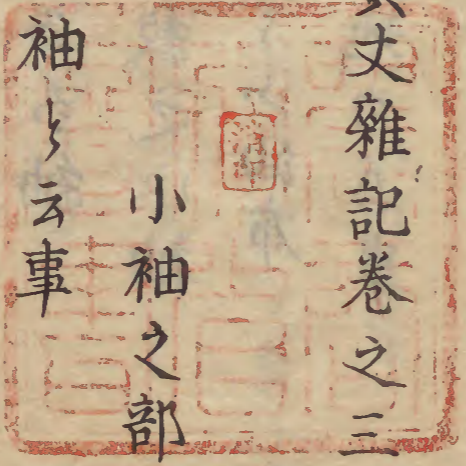 丈雜記卷之三
小袖之部
袖と云事